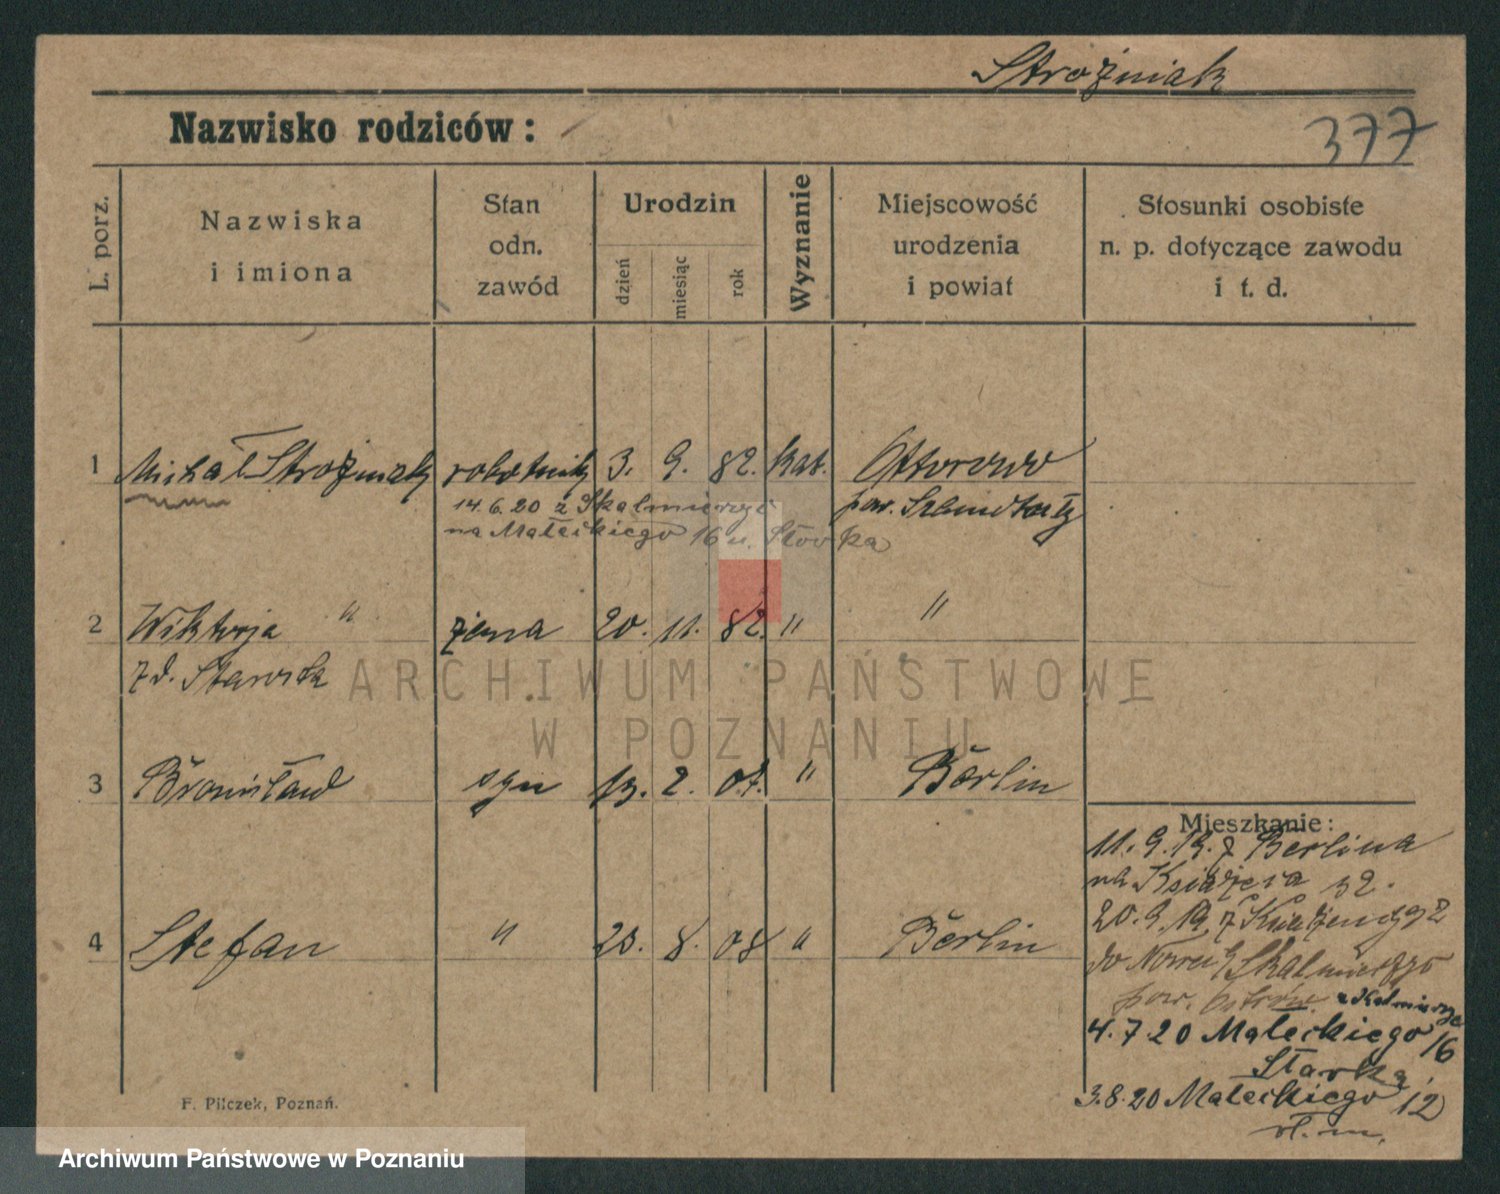 Strożniak
Nazwisko rodziców:
377
L. porz.
Nazwiska
i imiona
Stan
odn.
zawód
Urodzin
dzień
miesiąc
rok
Wyznanie
Miejscowość
urodzenia
i powiat
Stosunki osobiste
n. p. dotyczące zawodu
i t. d.
1 Michał Strożniak robotnik 3. 9. 82. kat. Ottorowo
pow. Szamotuły
14.6.20 z Skalmierzyc
na Małeckiego 16 u.
2 Wiktorja " żona 20. 11. 82. " "
z d.
3 Bronisław syn 13. 2. 07. " Berlin
4 Stefan " 28. 8. 08 " Berlin
Mieszkanie:
11. 9. 19. z Berlina
na Książęca 32.
20. 9. 19 z
do Skalmierzyc
pow. Ostrów.
4. 7 20 Małeckiego 16
3. 8. 20 Małeckiego 12
F. Pilczek, Poznań.
ARCHIWUM PAŃSTWOWE
W POZNANIU
Archiwum Państwowe w Poznaniu